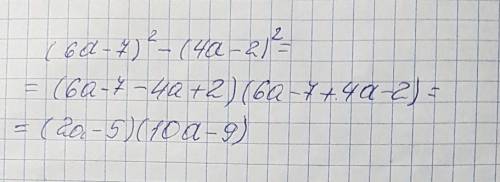 (6a-7)²-(4a-2)²=
=(6a-7-4a+2)(6a-7+4a-2)=
=(2a-5)(10a-9)